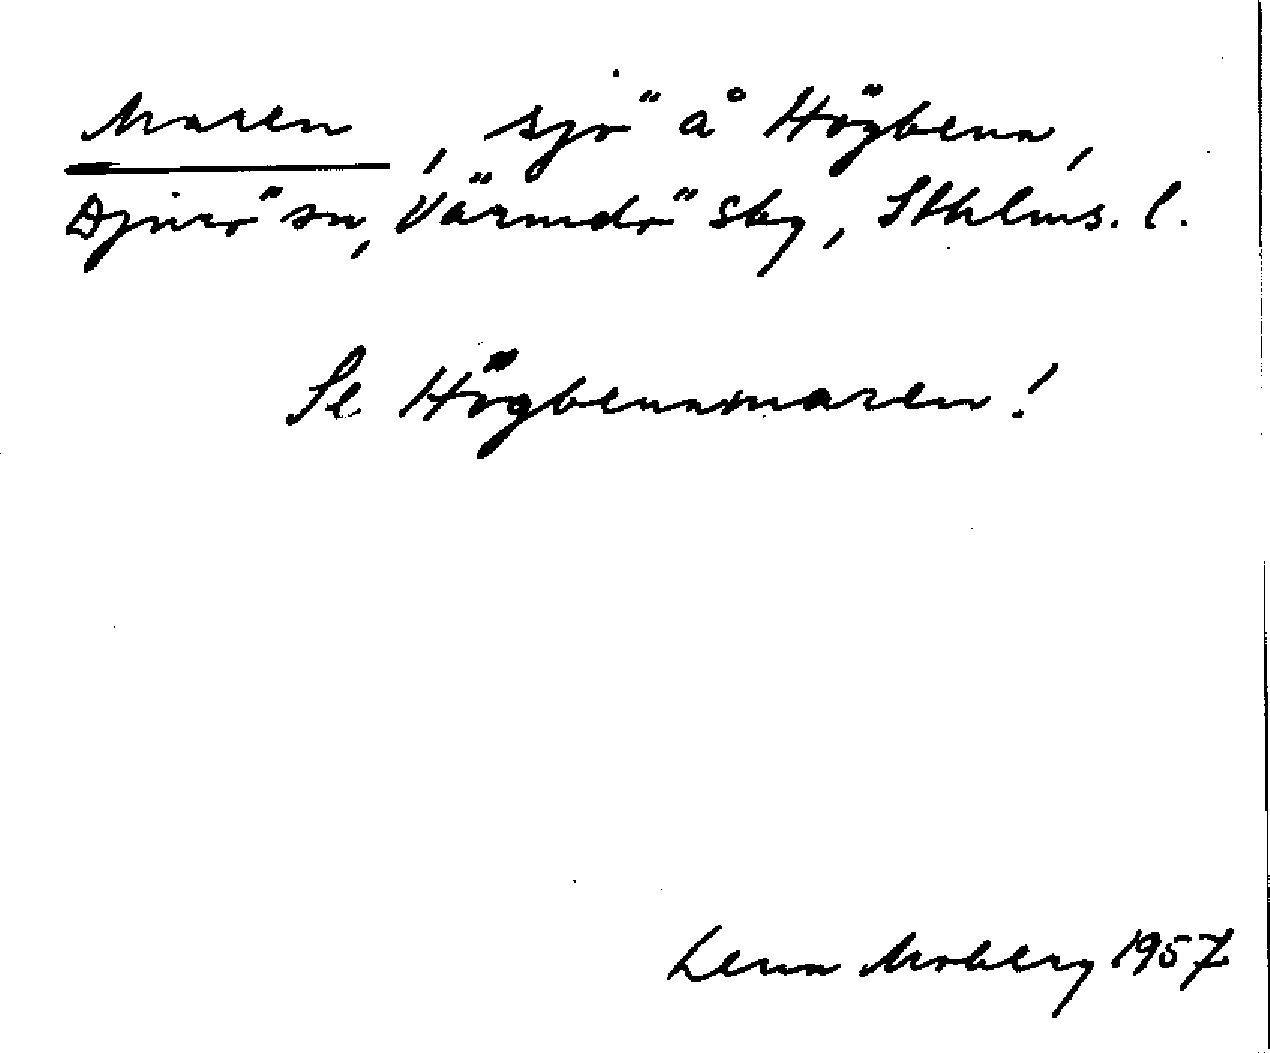 Maren, sjö å Högbenn,
Djurö sn, Värmdö skg, Sthlms. l.
Se Högbennmaren!
Lena Moberg 1957